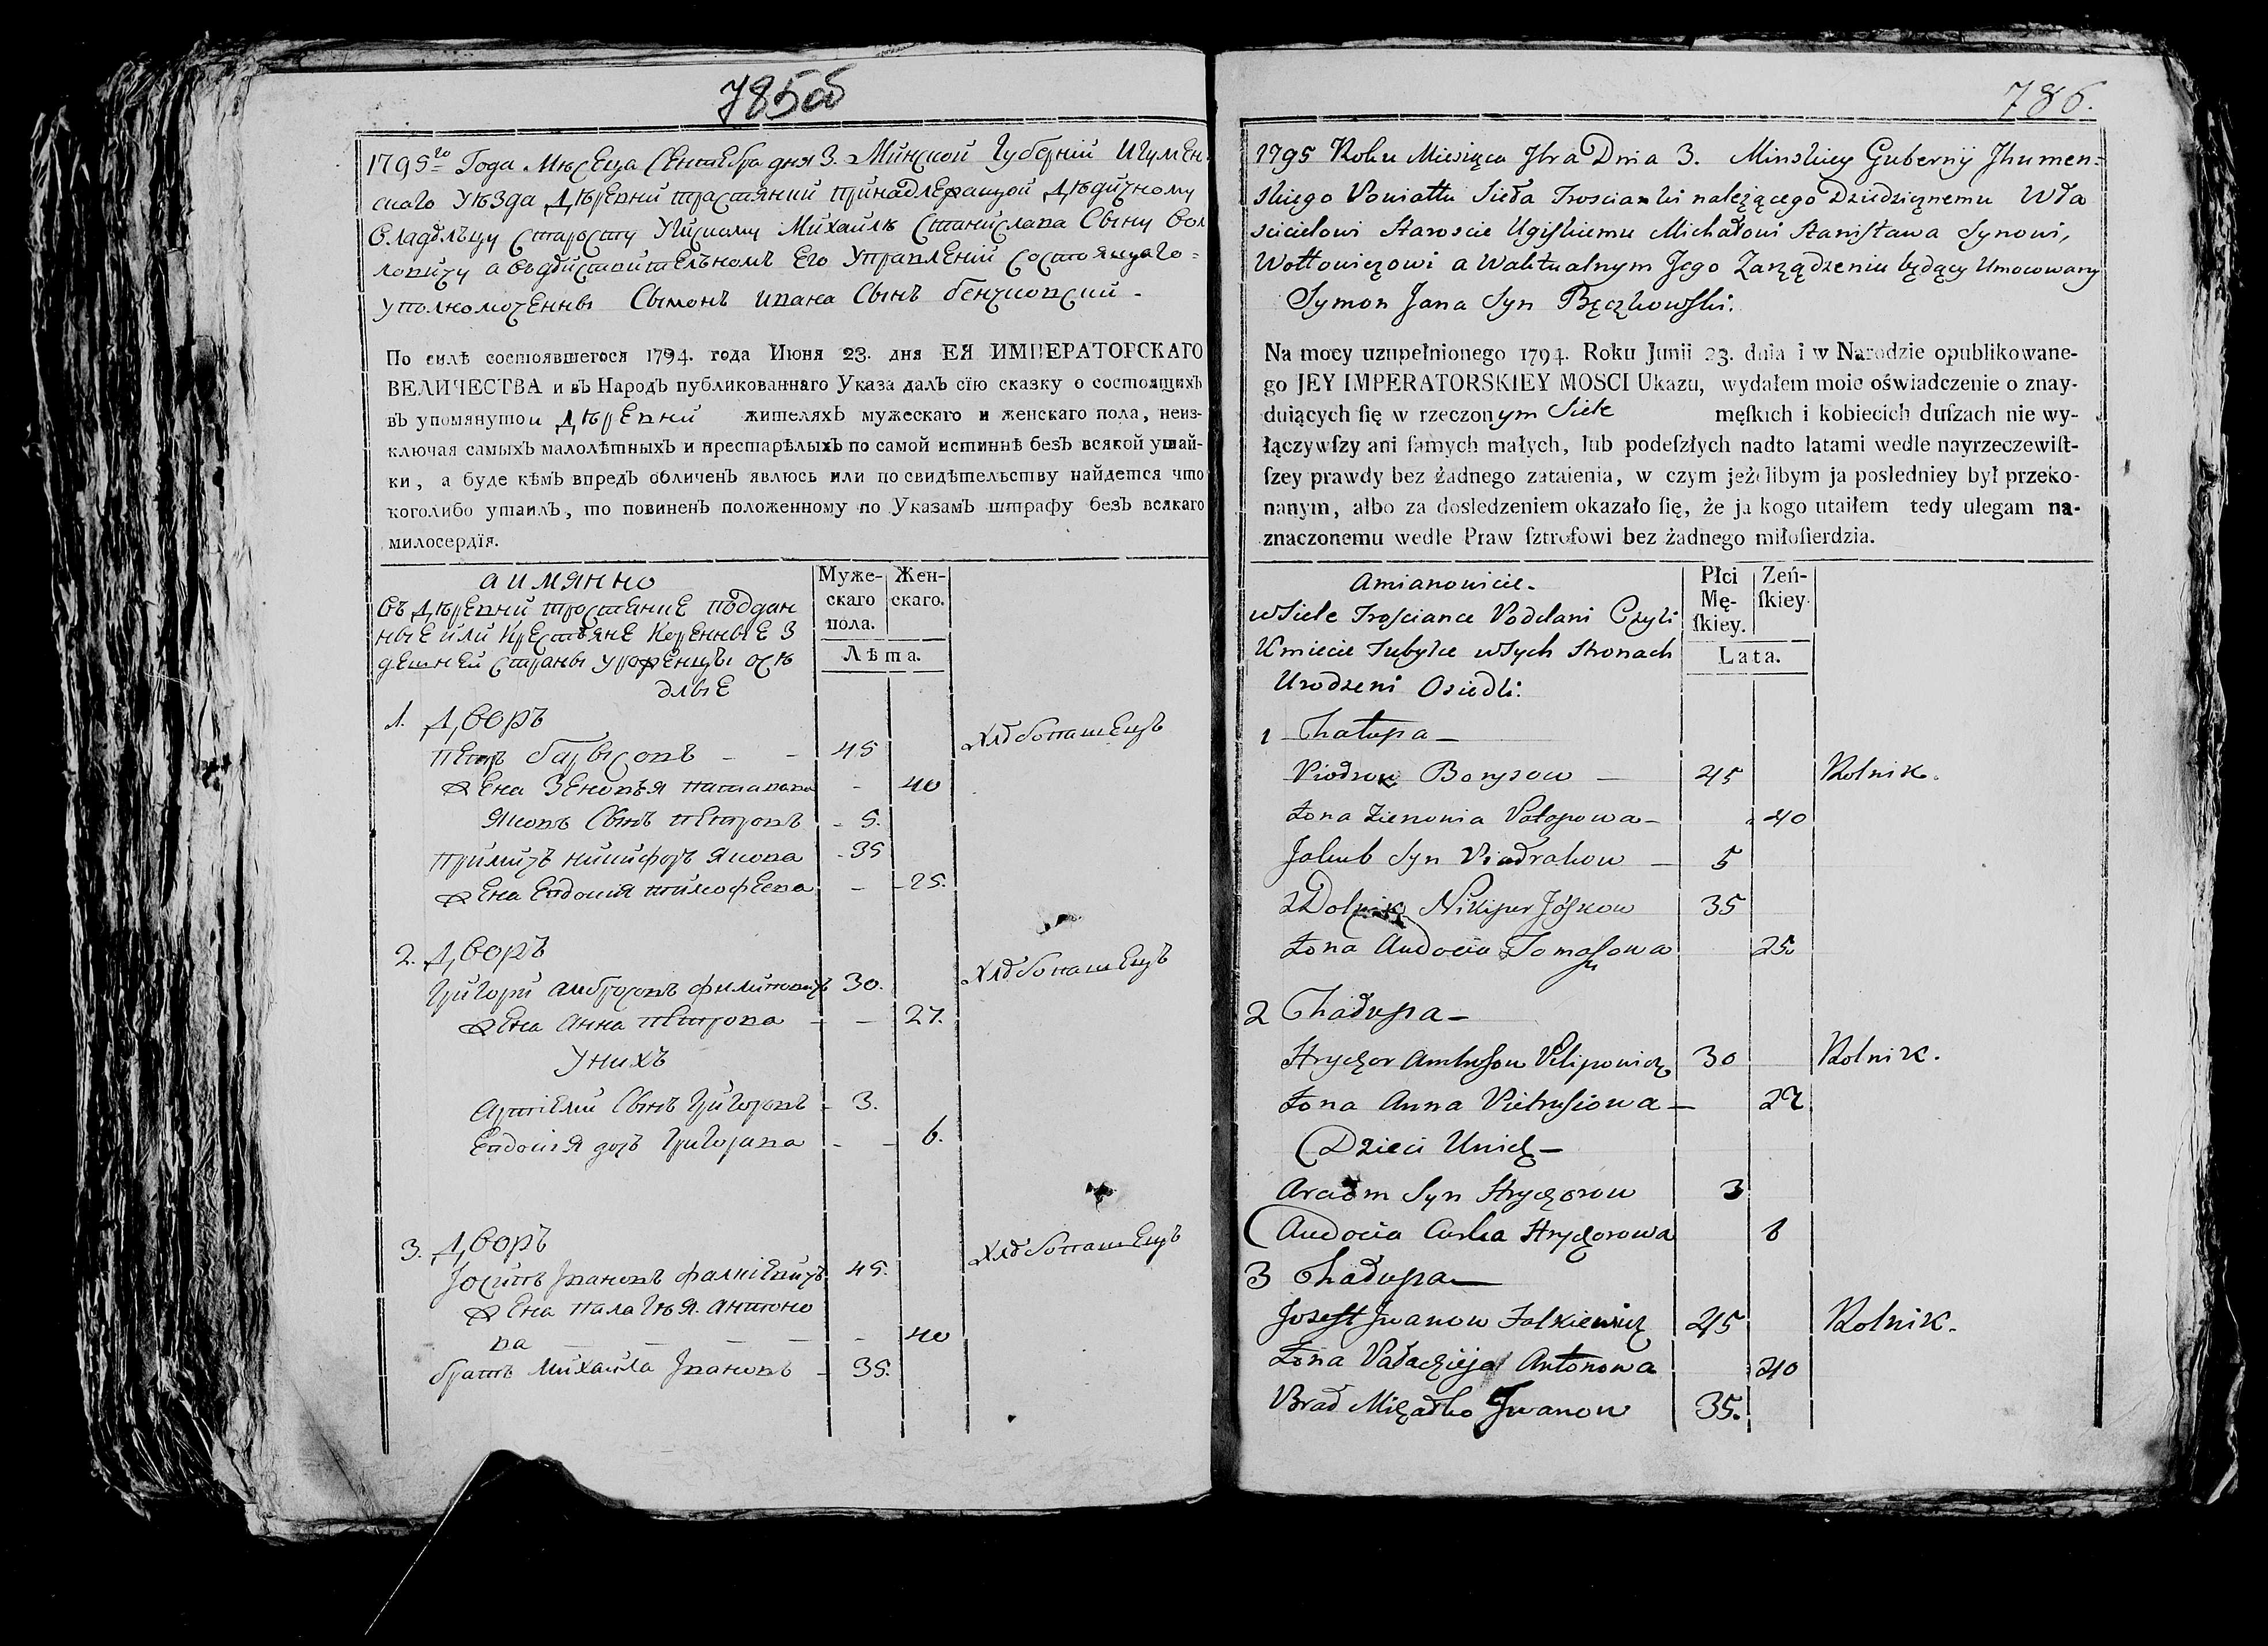 785об
1795го Года Мѣсеца Сентебра дня 3. Минской Губерній Игумен
скаго Уѣзда Дѣревни Тростяний принадлежащой Дѣдичному
Владѣлъцу Старосту Угискому Михаилѣ Станислава Сыну Вол
ловичу а въ дѣйствителъномъ Его Управленій состоящаго =
уполномоченны Сымонъ Ивана Сынъ Бенчковский -
По силѣ состоявшегося 1794. года Июня 23. дня ЕЯ ИМПЕРАТОРСКАГО
ВЕЛИЧЕСТВА и въ Народъ публикованнаго Указа далъ сїю сказку о состоящихъ
въ упомянутои Дѣревни жителяхъ мужескаго и женскаго пола, неиз-
ключая самыхъ малолѣтныхъ и престарѣлыхъ по самой истиннѣ безъ всякой утай-
ки, а буде кѣмъ впредь обличенъ явлюсь или по свидѣтельству найдется что
коголибо утаилъ, то повиненъ положенному по Указамъ штрафу безъ всякаго
милосердїя.
аимянно
въ Дѣревни Тростянце поддан
ные или Крестьяне Коренные З
дешней страны уроженцы осѣ
длые
Муже-
скаго
пола.
Жен-
скаго.
Лѣта.
1. Дворъ
Петръ Барысовъ - - 45 Хлѣбопашецъ
Жена Зеновъя Патапова - 40
Яковъ Сынъ Петровъ - 5.
Примичъ Никифоръ Якова - 35
Жена Евдокия Тимофеева - - 25.
2. Дворъ
Григори Амбросовъ Филиповичъ 30. Хлѣбопашецъ
Жена Анна Петрова - - 27.
Унихъ
Артіеми Сынъ Григоровъ - 3.
Евдокія дочъ Григорава - - 6.
3. Дворъ
Іосипъ Івановъ Фалкіевичъ 45. Хлѣбопашецъ
Жена Палагѣя Антоно
ва - - - - - 40
братъ Михаила Івановъ - 35.
786.
1795 Roku Miesiąca 7bra Dnia 3. Minskiey Gubernij Jhumen=
skiego Powiattu Sieła Trosciankі należącego Dziedzicznemu Wła
scicielowi Staroscie Ugiskiemu Michałowi Stanisława Synowi,
Wołłowiczowi a Waktualnym Jego Zarządzeniu będący Umocowany
Symon Jana Syn Bęczkowski.
Na mocy uzupełnionego 1794. Roku Junii 23. dnia i w Narodzie opublikowane-
go JEY IMPERATORSKIEY MOSCI Ukazu, wydałem moie oświadczenie o znay-
duiących ſię w rzeczonym Siele męſkich i kobiecich duſzach nie wy-
łączywſzy ani ſamych małych, lub podeſzłych nadto latami wedle nayrzeczewiſt-
ſzey prawdy bez żadnego zataienia, w czym jeżelibym ja posledniey był przeko-
nanym, albo za dosledzeniem okazało ſię, że ja kogo utaiłem tedy ulegam na-
znaczonemu wedle Praw ſztrofowi bez żadnego miłoſierdzia.
Amianowicie.
w Siele Trosciance Poddani Czyli
Kmiecie Tubylce w Tych Stronach
Urodzeni Osiedli:
Płci
Mę-
ſkiey.
Zeń-
ſkiey.
Lata.
1 Chałupa -
Borysow - 45 Rolnik.
Żona Zienowia Potapowa - 40
Jakub Syn - 5
Nikiper 35
Żona Audocia Tomaszowa 25.
2 Chałupa -
Hrychor Ambrosow Pilipowicz 30 Rolnik.
Żona Anna Pietrusiowa - 27
Dzieci Unich -
Arciom Syn Hrychorow 3
Audocia Curka Hrychorowa 6
3 Chałupa -
Jozeff Jwanow Falkiewicz 45 Rolnik.
Żona Pałachieja Antonowa 40
Brad Michałko Jwanow 35.